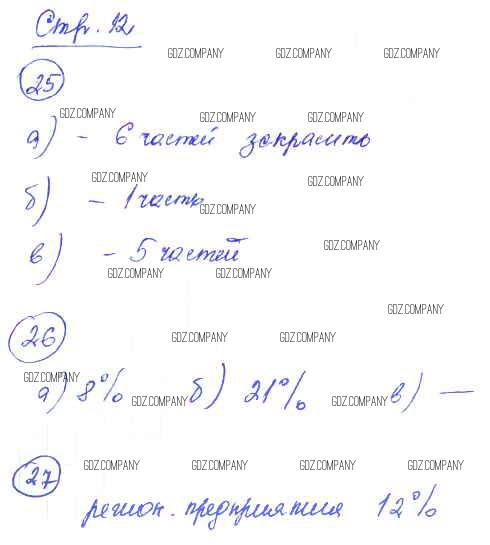 Стр. 12
GDZ.COMPANY GDZ.COMPANY GDZ.COMPANY
25
GDZ.COMPANY GDZ.COMPANY GDZ.COMPANY
а) - 6 частей закрасить
GDZ.COMPANY GDZ.COMPANY
б) - 1 часть
GDZ.COMPANY
в) - 5 частей
GDZ.COMPANY
GDZ.COMPANY GDZ.COMPANY
GDZ.COMPANY
26
GDZ.COMPANY GDZ.COMPANY
GDZ.COMPANY
а) 8% б) 21% в) —
GDZ.COMPANY GDZ.COMPANY
27
GDZ.COMPANY GDZ.COMPANY GDZ.COMPANY GDZ.COMPANY
регион. предприятия 12%